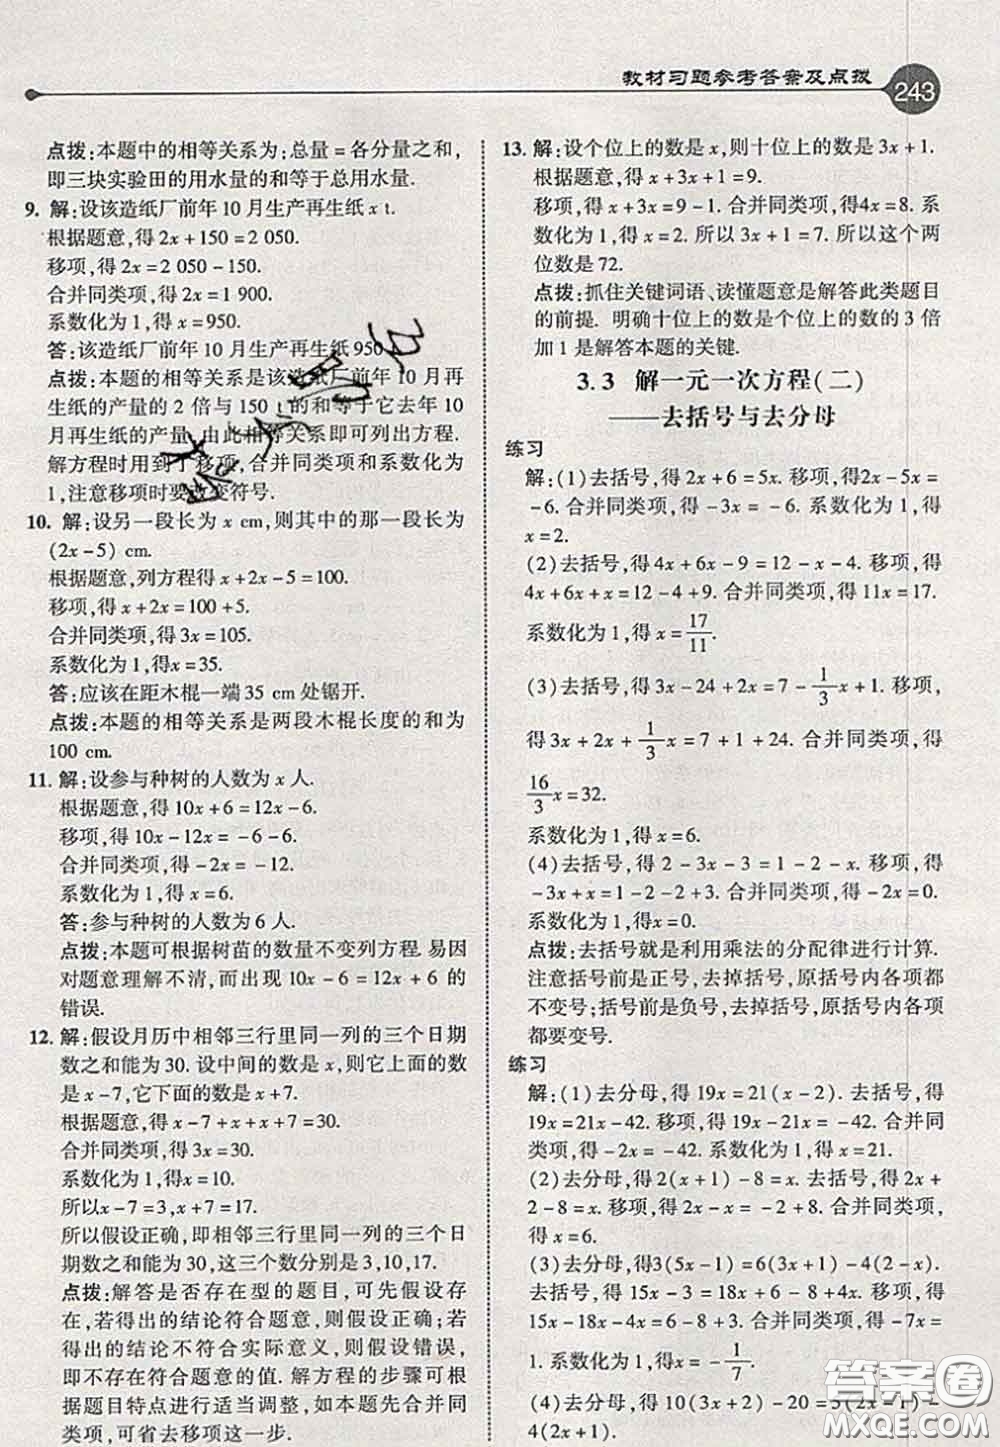 教材习题参考答案及点拨 243
点拨:本题中的相等关系为:总量=各分量之和,
即三块实验田的用水量的和等于总用水量.
9. 解:设该造纸厂前年 10 月生产再生纸 x t.
根据题意,得 2x+150=2 050.
移项,得 2x=2 050-150.
合并同类项,得 2x=1 900.
系数化为 1,得 x=950.
答:该造纸厂前年 10 月生产再生纸 950
点拨:本题的相等关系是该造纸厂前年 10 月再
生纸的产量的 2 倍与 150 t 的和等于它去年 10
月再生纸的产量,由此相等关系即可列出方程.
解方程时用到了移项,合并同类项和系数化为
1,注意移项时要改变符号.
10. 解:设另一段长为 x cm,则其中的那一段长为
(2x-5) cm.
根据题意,列方程得 x+2x-5=100.
移项,得 x+2x=100+5.
合并同类项,得 3x=105.
系数化为 1,得x=35.
答:应该在距木棍一端 35 cm 处锯开.
点拨:本题的相等关系是两段木棍长度的和为
100 cm.
11. 解:设参与种树的人数为 x 人.
根据题意,得 10x+6=12x-6.
移项,得 10x-12x=-6-6.
合并同类项,得 -2x=-12.
系数化为 1,得 x=6.
答:参与种树的人数为 6 人.
点拨:本题可根据树苗的数量不变列方程.易因
对题意理解不清,而出现 10x-6=12x+6 的
错误.
12. 解:假设月历中相邻三行里同一列的三个日期
数之和能为 30. 设中间的数是 x,则它上面的数
是 x-7,它下面的数是 x+7.
根据题意,得 x-7+x+x+7=30.
合并同类项,得 3x=30.
系数化为 1,得x=10.
所以x-7=3,x+7=17.
所以假设正确,即相邻三行里同一列的三个日
期数之和能为 30,这三个数分别是 3,10,17.
点拨:解答是否存在型的题目,可先假设存
在,若得出的结论符合题意,假设正确;若
得出的结论不符合实际意义,则假设错误,
即不存在符合题意的值. 解方程的步骤可根
据题目特点进行适当调整,如本题先合并同
类项,可省去移项这一步.
13. 解:设个位上的数是 x,则十位上的数是 3x+1.
根据题意,得 x+3x+1=9.
移项,得 x+3x=9-1. 合并同类项,得4x=8. 系
数化为 1,得 x=2. 所以 3x+1=7. 所以这个两
位数是 72.
点拨:抓住关键词语、读懂题意是解答此类题目
的前提. 明确十位上的数是个位上的数的 3 倍
加 1 是解答本题的关键.
3.3 解一元一次方程(二)
——去括号与去分母
练习
解:(1)去括号,得 2x+6=5x. 移项,得 2x-5x=
-6. 合并同类项,得 -3x=-6. 系数化为 1,得
x=2.
(2)去括号,得 4x+6x-9=12-x-4. 移项,得
4x+6x+x=12-4+9. 合并同类项,得 11x=17.
系数化为 1,得 x=17/11.
(3)去括号,得 3x-24+2x=7-1/3x+1. 移项,
得 3x+2x+1/3x=7+1+24. 合并同类项,得
16/3x=32.
系数化为 1,得 x=6.
(4)去括号,得 2-3x-3=1-2-x. 移项,得
-3x+x=1-2-2+3. 合并同类项,得-2x=0.
系数化为 1,得 x=0.
点拨:去括号就是利用乘法的分配律进行计算.
注意括号前是正号,去掉括号,原括号内各项都
不变号;括号前是负号,去掉括号,原括号内各项
都要变号.
练习
解:(1)去分母,得 19x=21(x-2). 去括号,得
19x=21x-42. 移项,得 19x-21x=-42. 合并同
类项,得-2x=-42. 系数化为 1,得 x=21.
(2)去分母,得2(x+1)-8=x. 去括号,得
2x+2-8=x. 移项,得 2x-x=-2+8. 合并同类项,得
x=6.
(3)去分母,得 3(5x-1)=6(3x+1)-2(4-x).
去括号,得 15x-3=18x+6-8+2x. 移项,得
15x-18x-2x=6-8+3. 合并同类项,得 -5x=
1. 系数化为 1,得
(4)去分母,得 10(3x+2)-20=5(2x-1)-
4(2x+1).
答案圈
MXQE.COM